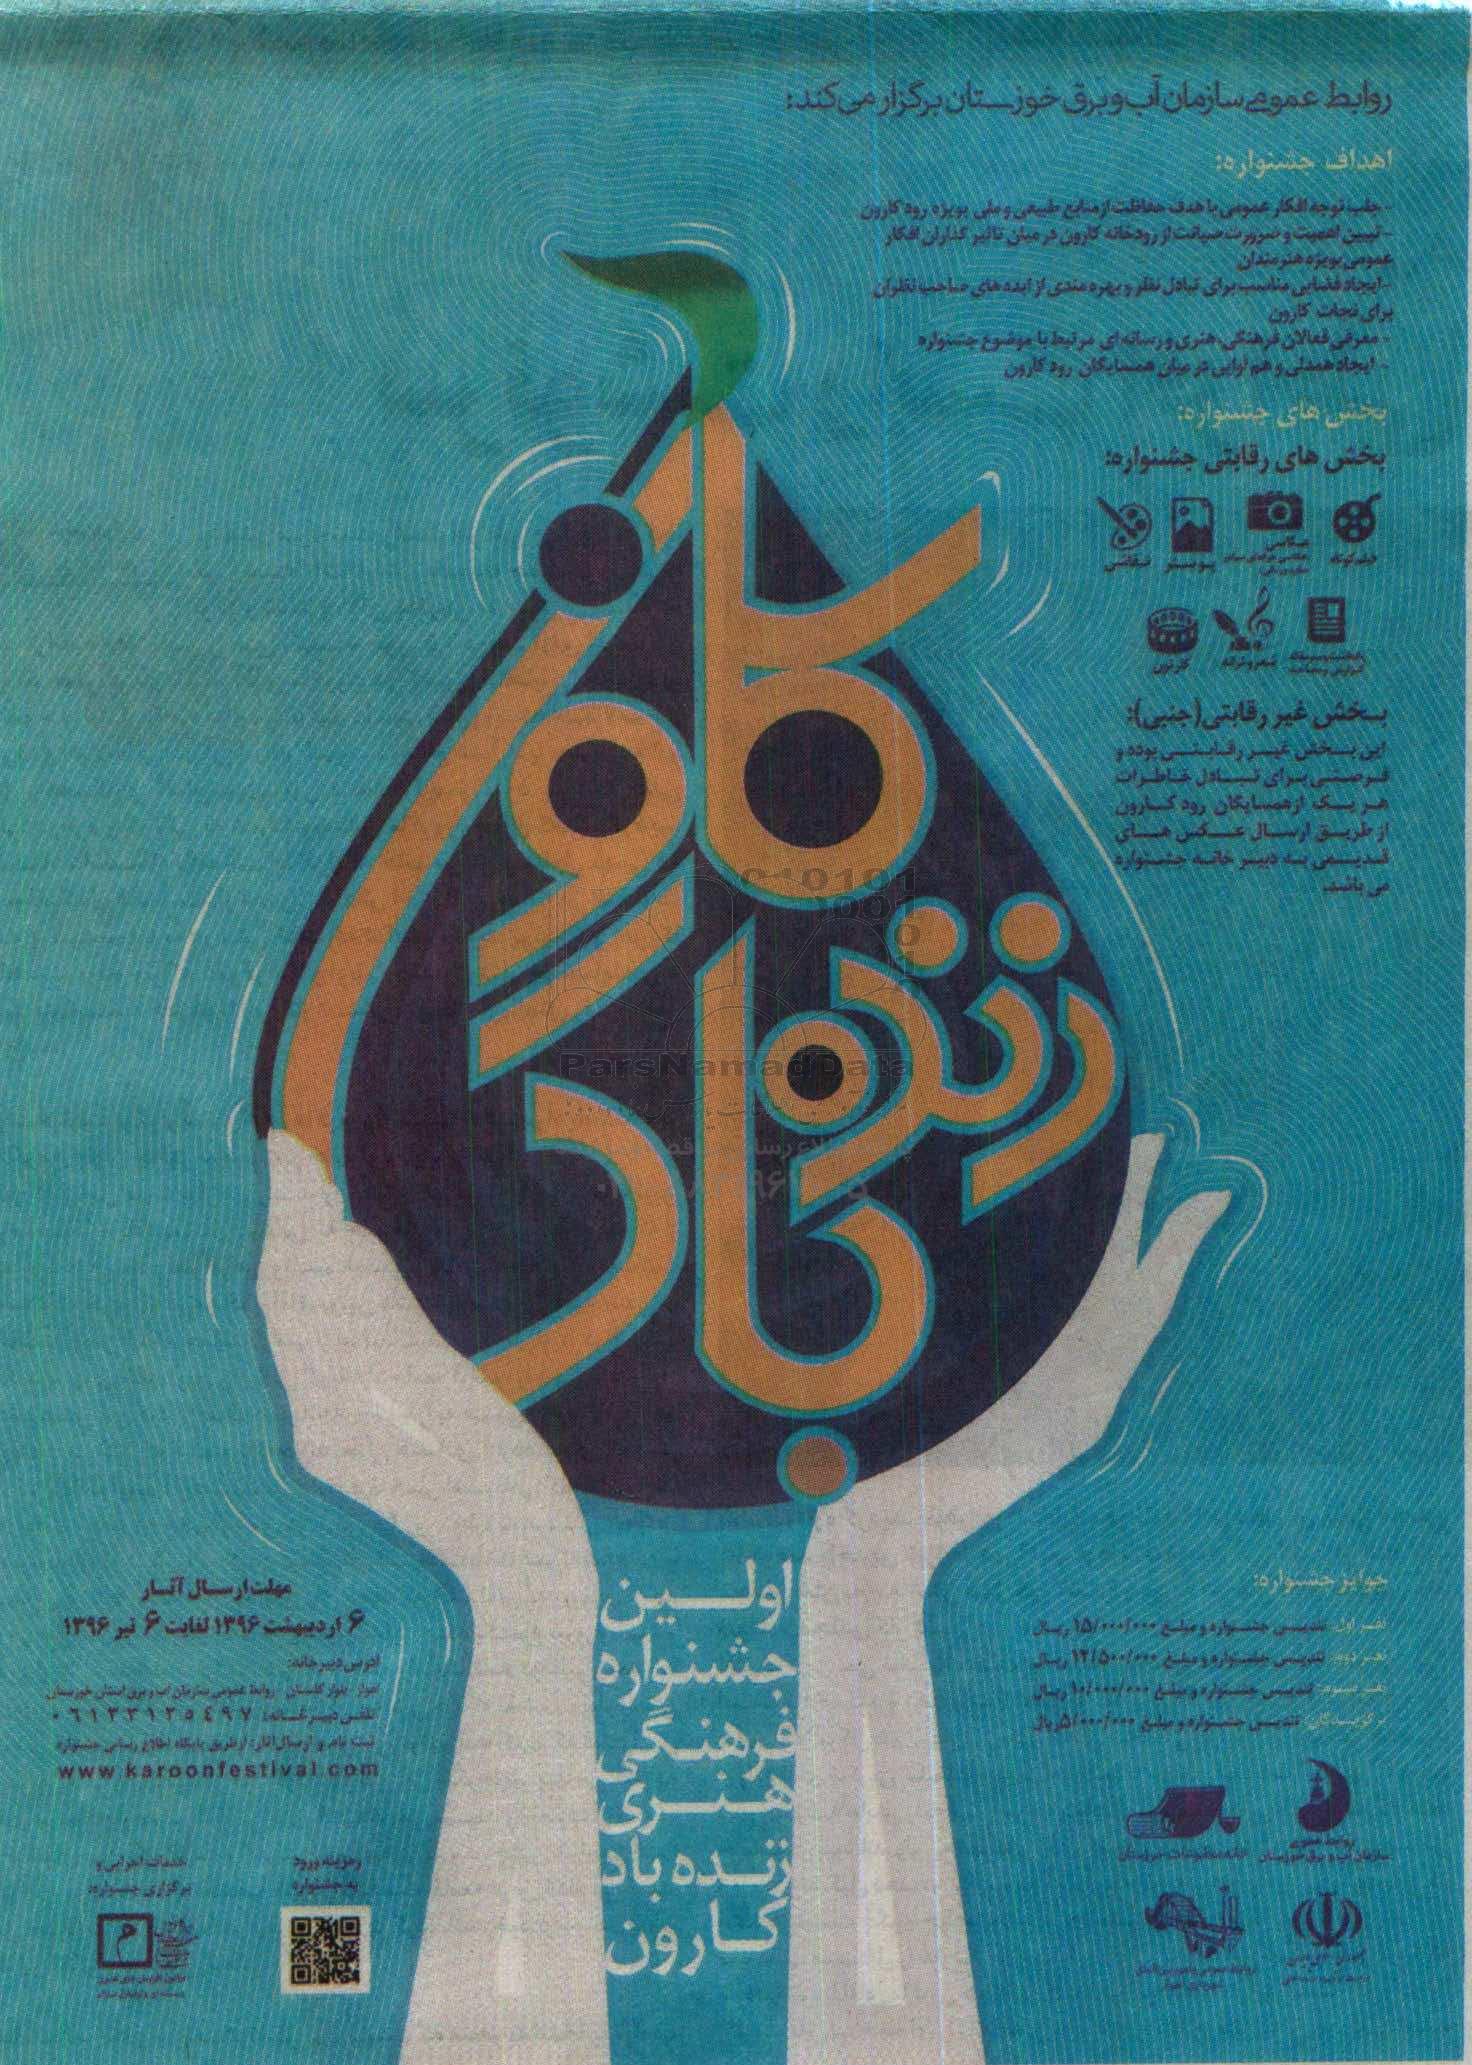 روابط عمومی سازمان آب و برق خوزستان برگزار می‌کند:
اهداف جشنواره:
- جلب توجه افکار عمومی با هدف حفاظت از منابع طبیعی و ملی بویژه رود کارون
- تبیین اهمیت و ضرورت صیانت از رودخانه کارون در میان تاثیر گذاران افکار
عمومی بویژه هنرمندان
- ایجاد فضایی مناسب برای تبادل نظر و بهره مندی از ایده های صاحب نظران
برای نجات کارون
- معرفی فعالان فرهنگی، هنری و رسانه ای مرتبط با موضوع جشنواره
- ایجاد همدلی و هم نوایی در میان همسایگان رود کارون
بخش های جشنواره:
بخش های رقابتی جشنواره:
فیلم کوتاه
عکاسی
پوستر
نقاشی
شعر و ترانه
کارتون
بخش غیر رقابتی (جنبی):
این بخش غیر رقابتی بوده و
فرصتی برای تبادل خاطرات
هر یک از همسایگان رود کارون
از طریق ارسال عکس های
قدیمی به دبیر خانه جشنواره
می باشد.
زنده باد کارون
ParsNamadData
اولین
جشنواره
فرهنگی
هنری
زنده باد
کارون
جوایز جشنواره:
نفر اول: تندیس جشنواره و مبلغ ۱۵/۰۰۰/۰۰۰ ریال
نفر دوم: تندیس جشنواره و مبلغ ۱۲/۵۰۰/۰۰۰ ریال
نفر سوم: تندیس جشنواره و مبلغ ۱۰/۰۰۰/۰۰۰ ریال
برگزیدگان: تندیس جشنواره و مبلغ ۵/۰۰۰/۰۰۰ ریال
روابط عمومی
سازمان آب و برق خوزستان
خانه مطبوعات خوزستان
مهلت ارسال آثار
۶ اردیبهشت ۱۳۹۶ لغایت ۶ تیر ۱۳۹۶
آدرس دبیرخانه:
اهواز - بلوار گلستان - روابط عمومی سازمان آب و برق استان خوزستان
تلفن دبیرخانه: ۰۶۱۳۳۱۳۵۴۹۷
ثبت نام و ارسال آثار: از طریق پایگاه اطلاع رسانی جشنواره
www.karoonfestival.com
رمزینه ورود
به جشنواره
خدمات اجرایی و
برگزاری جشنواره: